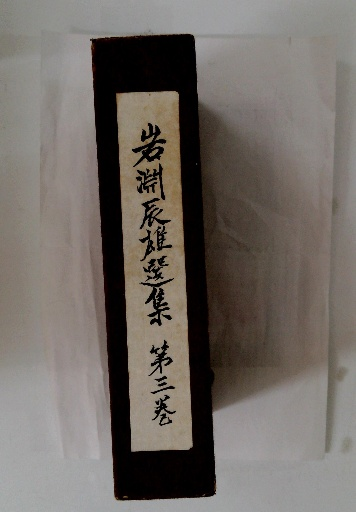 岩淵辰雄選集 第三巻